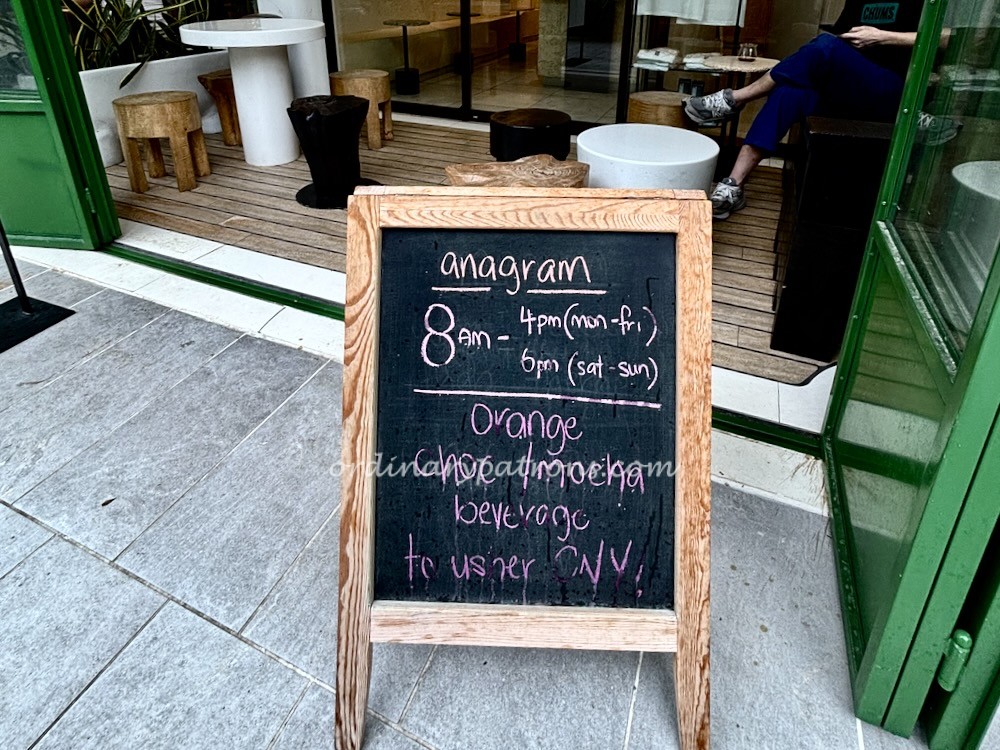 CHUMS
anagram
8AM - 4pm (mon-fri)
6pm (sat-sun)
Orange
choc / mocha
beverage
to usher CNY!
ordinarypatrons.com